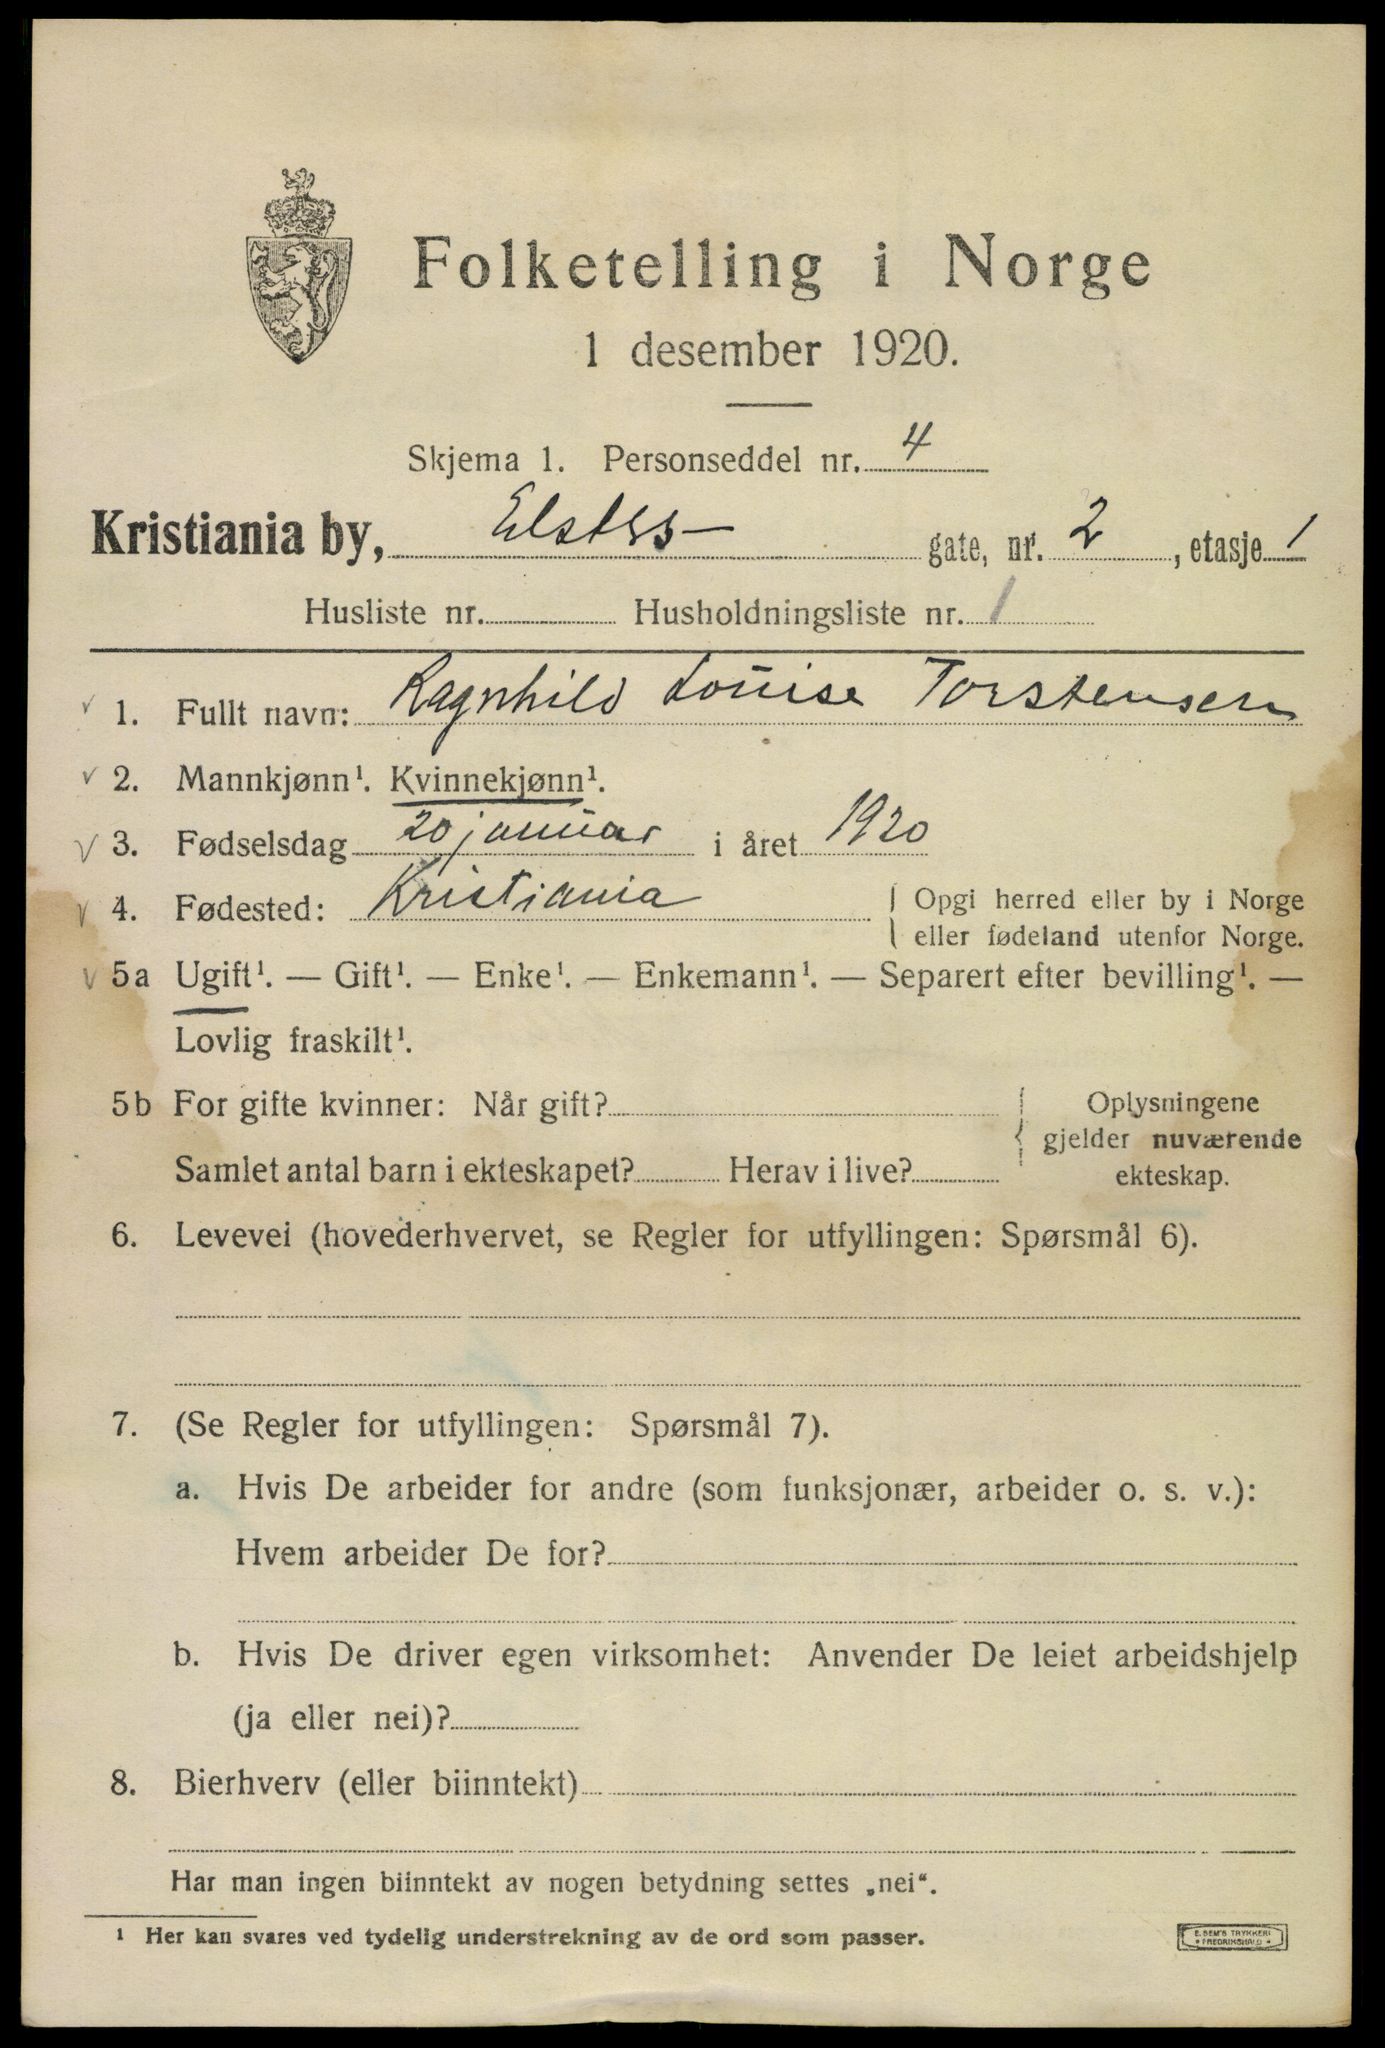 Folketelling i Norge
1 desember 1920.
Skjema 1. Personseddel nr. 4
Kristiania by, Elsters- gate, nr. 2, etasje 1
Husliste nr. Husholdningsliste nr. 1
1. Fullt navn: Ragnhild Louise Torstensen
2. Mannkjønn¹. Kvinnekjønn¹.
3. Fødselsdag 20 januar i året 1920
4. Fødested: Kristiania Opgi herred eller by i Norge
eller fødeland utenfor Norge.
5a Ugift¹. — Gift¹. — Enke¹. — Enkemann¹. — Separert efter bevilling¹. —
Lovlig fraskilt¹.
5b For gifte kvinner: Når gift? Oplysningene
gjelder nuværende
Samlet antal barn i ekteskapet? Herav i live? ekteskap.
6. Levevei (hovederhvervet, se Regler for utfyllingen: Spørsmål 6).
7. (Se Regler for utfyllingen: Spørsmål 7).
a. Hvis De arbeider for andre (som funksjonær, arbeider o. s. v.):
Hvem arbeider De for?
b. Hvis De driver egen virksomhet: Anvender De leiet arbeidshjelp
(ja eller nei)?
8. Bierhverv (eller biinntekt)
Har man ingen biinntekt av nogen betydning settes „nei".
¹ Her kan svares ved tydelig understrekning av de ord som passer.
E. SEM'S TRYKKERI
* FREDRIKSHALD *